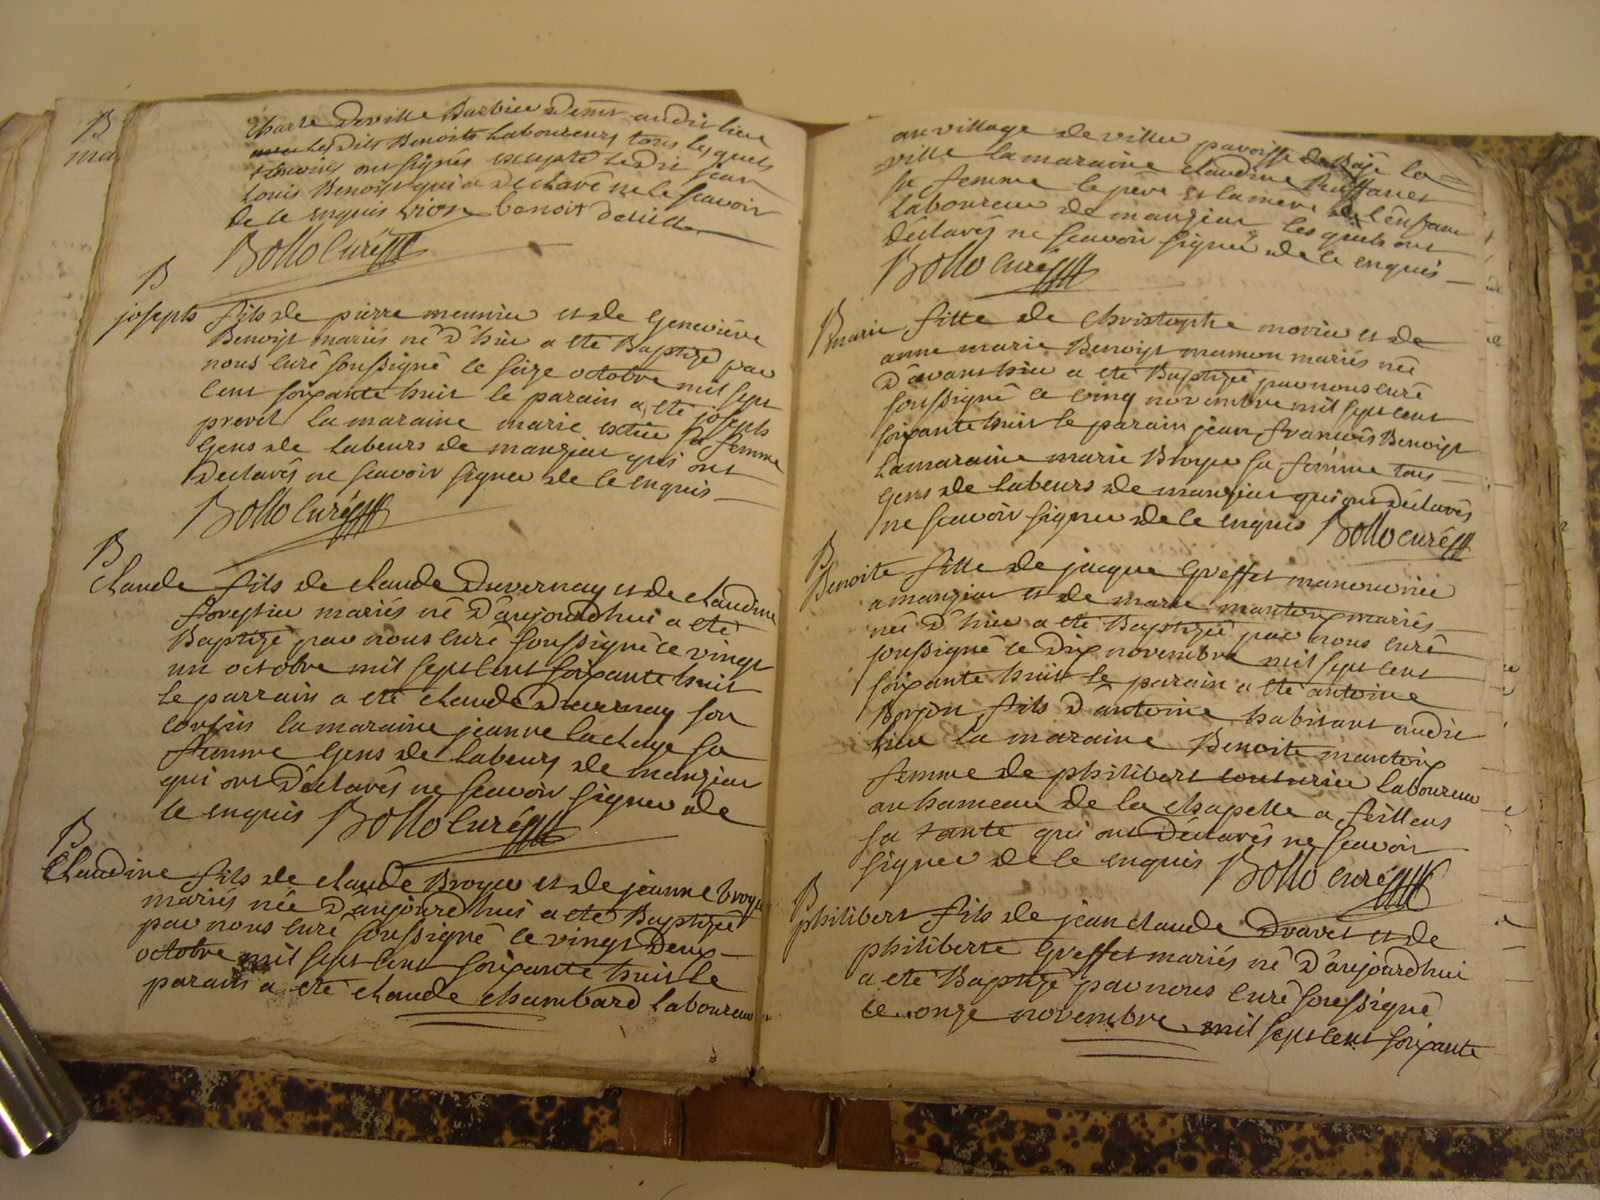 B
ma
charle deville Barbier demt audit lieu
avec lesdits Benoits laboureurs tous lesquels
ont signés excepté ledit jean
louis Benoist qui a declaré ne le scavoir
de ce enquis vion benoit deville
Bollo Curé
B
joseph fils de pierre meunier et de Genevieve
Benoist mariés né d'hier a eté Baptizé par
nous curé soussigné le seize octobre mil sept
cent soixante huit le parain a eté joseph
prevet la maraine marie sa femme
gens de labeurs de manziat qui ont
declarés ne scavoir signer de ce enquis
Bollo Curé
B
Claude fils de claude Duvernay et de claudine
forestier mariés né d'aujourdhui a eté
Baptizé par nous curé soussigné le vingt
un octobre mil sept cent soixante huit
le parrain a eté claude Duvernay son
cousin la maraine jeanne lachaye sa
femme gens de labeurs de manziat
qui ont déclarés ne scavoir signer de
ce enquis Bollo Curé
B
Claudine fils de claude Broyer et de jeanne broyer
mariés née d'aujourdhui a eté Baptizée
par nous curé soussigné le vingt deux
octobre mil sept cent soixante huit le
parain a eté claude chambard laboureur
au village de villers paroisse de Bagé la
ville la maraine claudine
sa femme le pere et la mere de l'enfant
laboureur de manziat les quels ont
déclarés ne scavoir signer de ce enquis
Bollo Curé
B
marie fille de christophe morier et de
anne marie Benoist mamon mariés née
d'avant hier a eté Baptizée par nous curé
soussigné le cinq novembre mil sept cent
soixante huit le parain jean francois Benoist
la maraine marie Broyer sa femme tous
gens de labeurs de manziat qui ont déclarés
ne scavoir signer de ce enquis Bollo curé
B
Benoite fille de jacque Greffet manouvrier
a manziat et de marie mantoux mariés
née d'hier a eté Baptizée par nous curé
soussigné le dix novembre mil sept cent
soixante huit le parain a eté antoine
Boyon fils d'antoine habitant audit
lieu la maraine Benoite mantoux
femme de philibert couturier laboureur
au hameau de la chapelle a feillens
sa tante qui ont déclarés ne scavoir
signer de ce enquis Bollo Curé
B
philibert fils de jean claude Dravet et de
philiberte Greffet mariés né d'aujourdhui
a eté Baptizé par nous curé soussigné
le onze novembre mil sept cent soixante